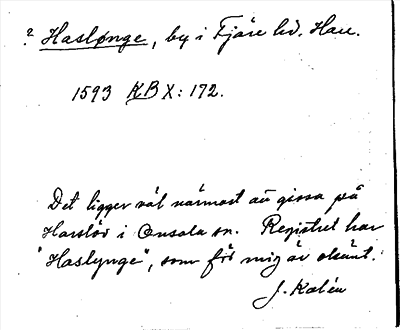 ? Haslønge, by i Fjäre hd. Han.
1593 KB X: 172.
Det ligger väl närmast att gissa på
Harslöv i Onsala sn. Registret har
"Haslynge", som för mig är okänt.
J. Kalén